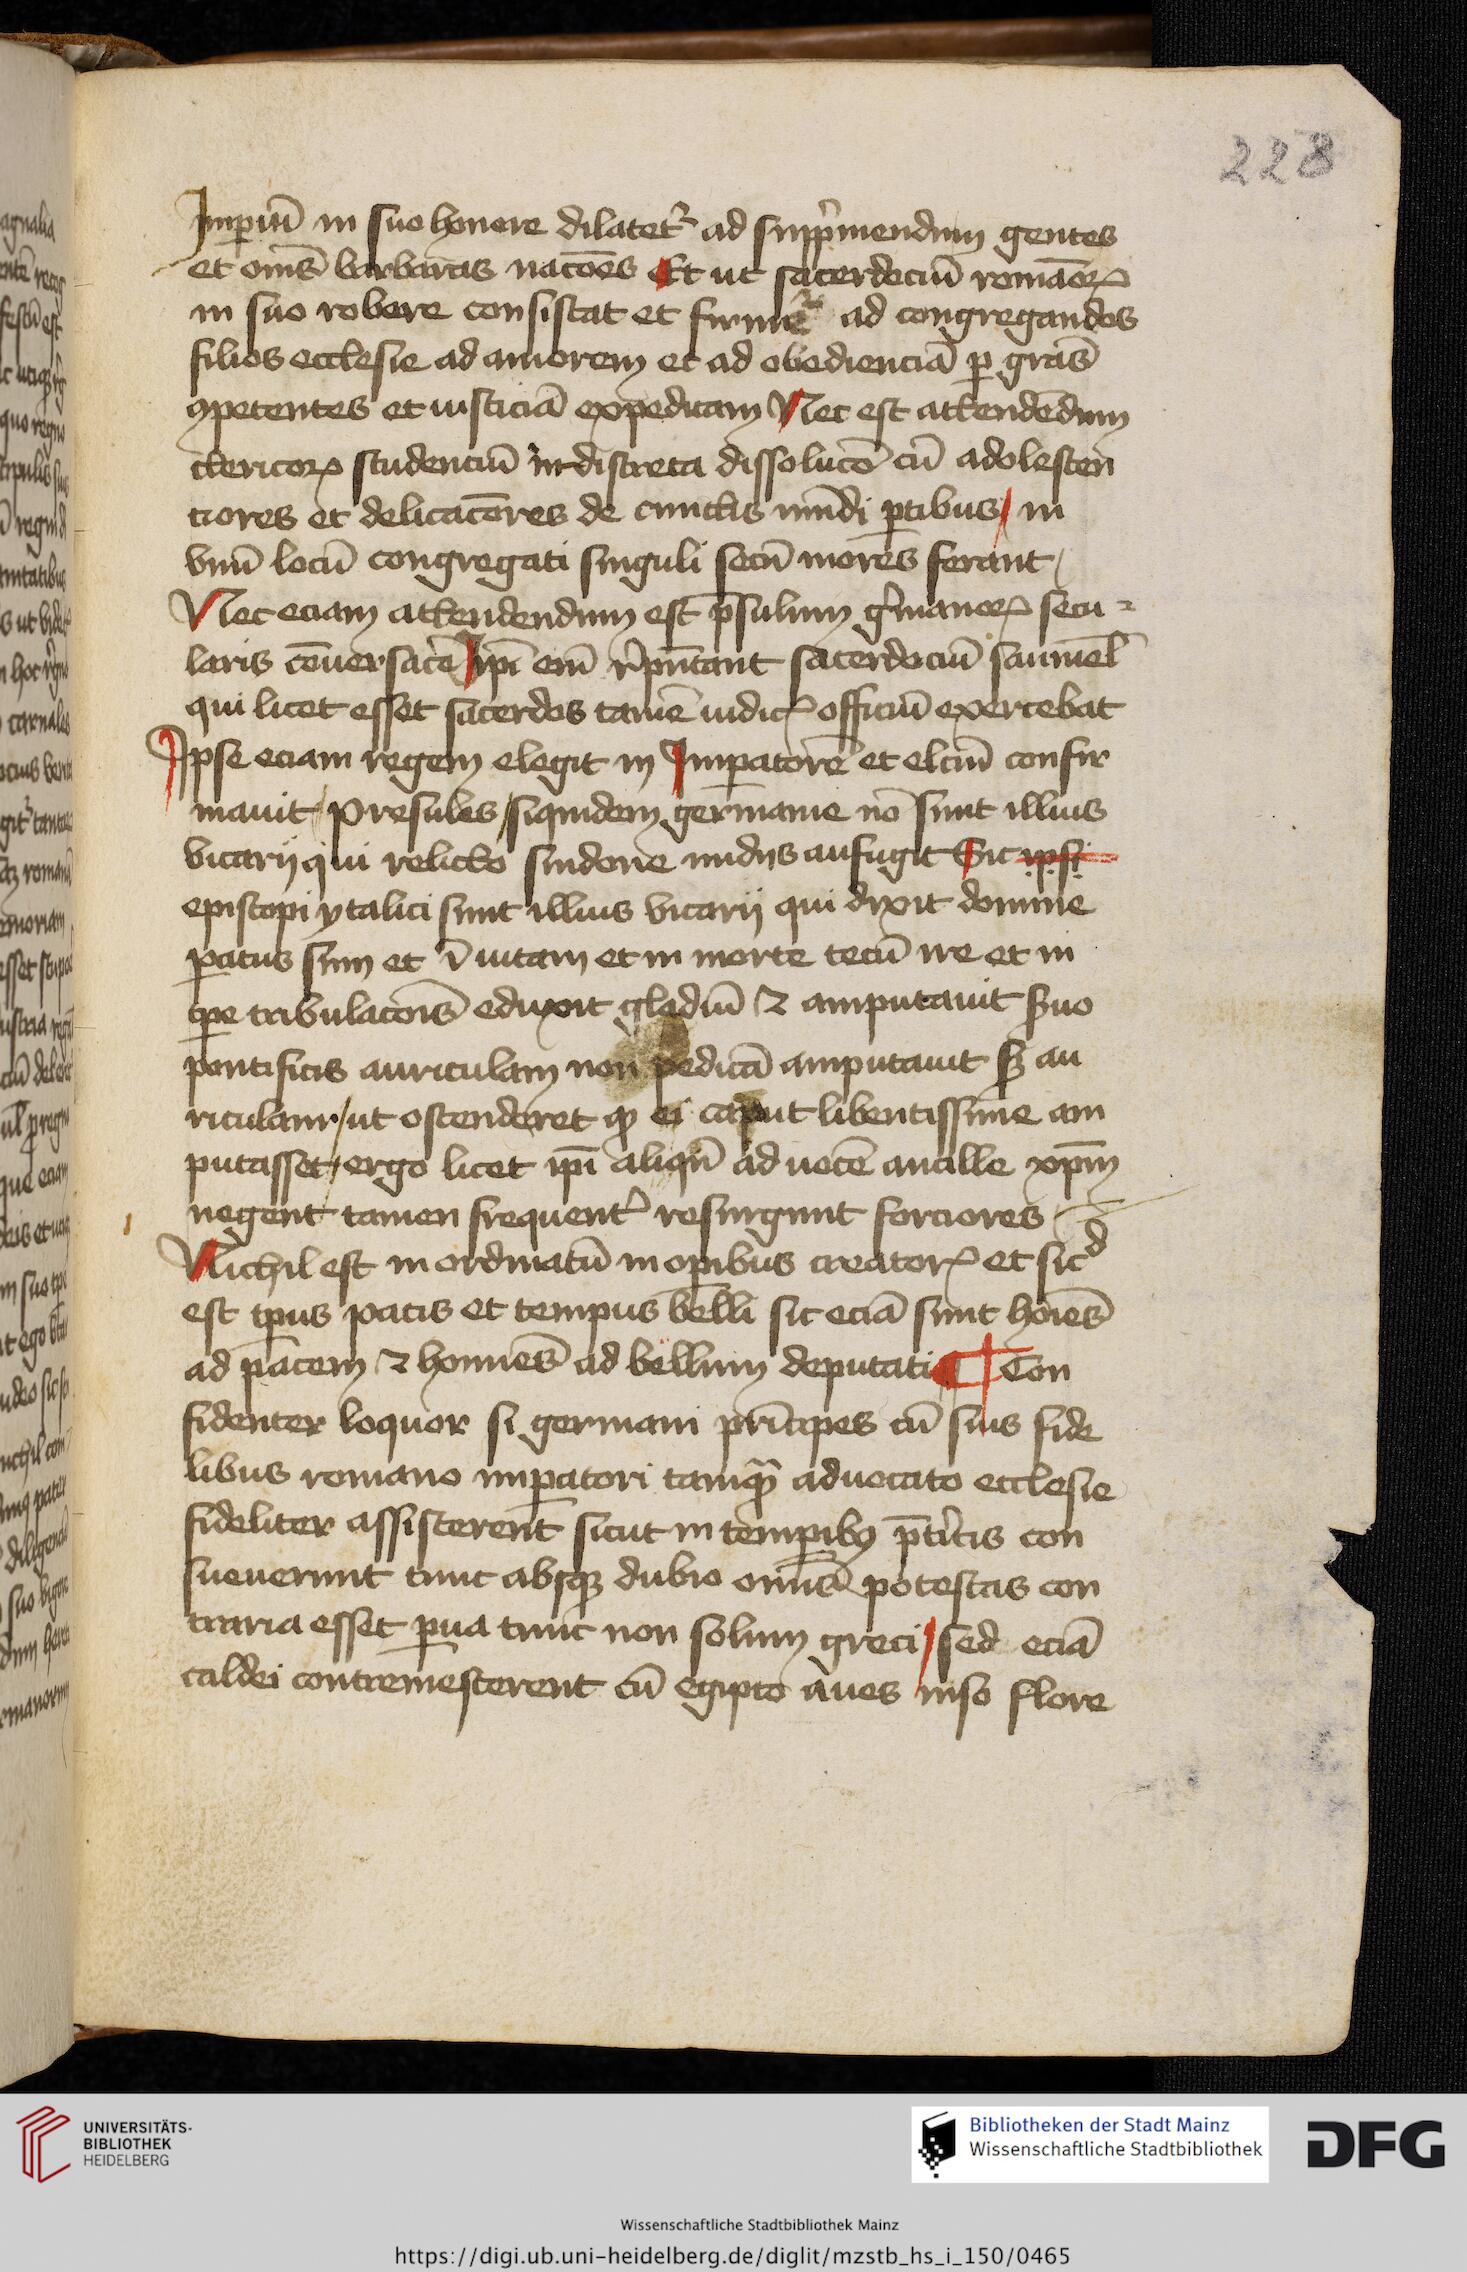 228
Imperiū in suo honore dilatet᷑ ad supp̄mendum gentes
et om̄s barbaras nac̄oēs Et ut sacerdociū romāoꝝ
in suo robore consistat et firme᷑ ad congregandos
filios ecclesie ad amorem et ad obedienciā ꝑ gr̄as
ꝯpetentes et iusticiā expeditam Nec est attendēdum
clericoꝝ studenciū indiscreta dissolucō cū adolescen
ciores et delicacōres de cunctis mūdi ꝑtibus / in
vnū locū congregati singuli secū mores ferant /
Nec eciam attendendum est p̄sulum gʼmanoꝝ secu
laris cōuersacō ip̄i em̄ rep̄ntant sacerdociū samuel̄
qui licet esset sacerdos tamē iudicꝭ officiū exercebat
Ipse eciam regem elegit in Imꝑatorē et elc̄um confir
mauit / Presules / siquidem germanie nō sunt illius
vicarij qui relicto sindone nudꝰ aufugit Sic ipsi
episcopi ytalici sunt illius vicarij qui dixit domine
ꝑatus sum et ī vitam et in morte tecū ire et in
tp̄e tribulacōis eduxit gladiū ⁊ amputauit s̄uo
pontificis auriculam non pedicā amputauit sꝫ au
riculam / ut ostenderet ꝙ ei caput libentissime am
putasset / ergo licet ip̄i aliqn̄ ad uocē ancille xp̄m
negent tamen frequentʼ resurgunt forciores
Nichil est inordinatū in oꝑibus creatorꝭ et sicᵈ
est tp̄us pacis et tempus belli sic eciā sunt hoīes
ad pacem ⁊ homīes ad bellum deputati ¶ Con
fidenter loquor si germani prīcipes cū suis fide
libus romano imꝑatori tamꝙ̄ aduocato ecclesie
fideliter assisterent sicut in temꝑibꝫ p̄tʼitis con
sueuerunt tunc absqꝫ dubio omīs potestas con
traria esset ꝑua tunc non solum greci / sed eciā
caldei contremescerent cū egipto
UNIVERSITÄTS-
BIBLIOTHEK
HEIDELBERG
Bibliotheken der Stadt Mainz
Wissenschaftliche Stadtbibliothek
DFG
Wissenschaftliche Stadtbibliothek Mainz
https://digi.ub.uni-heidelberg.de/diglit/mzstb_hs_i_150/0465